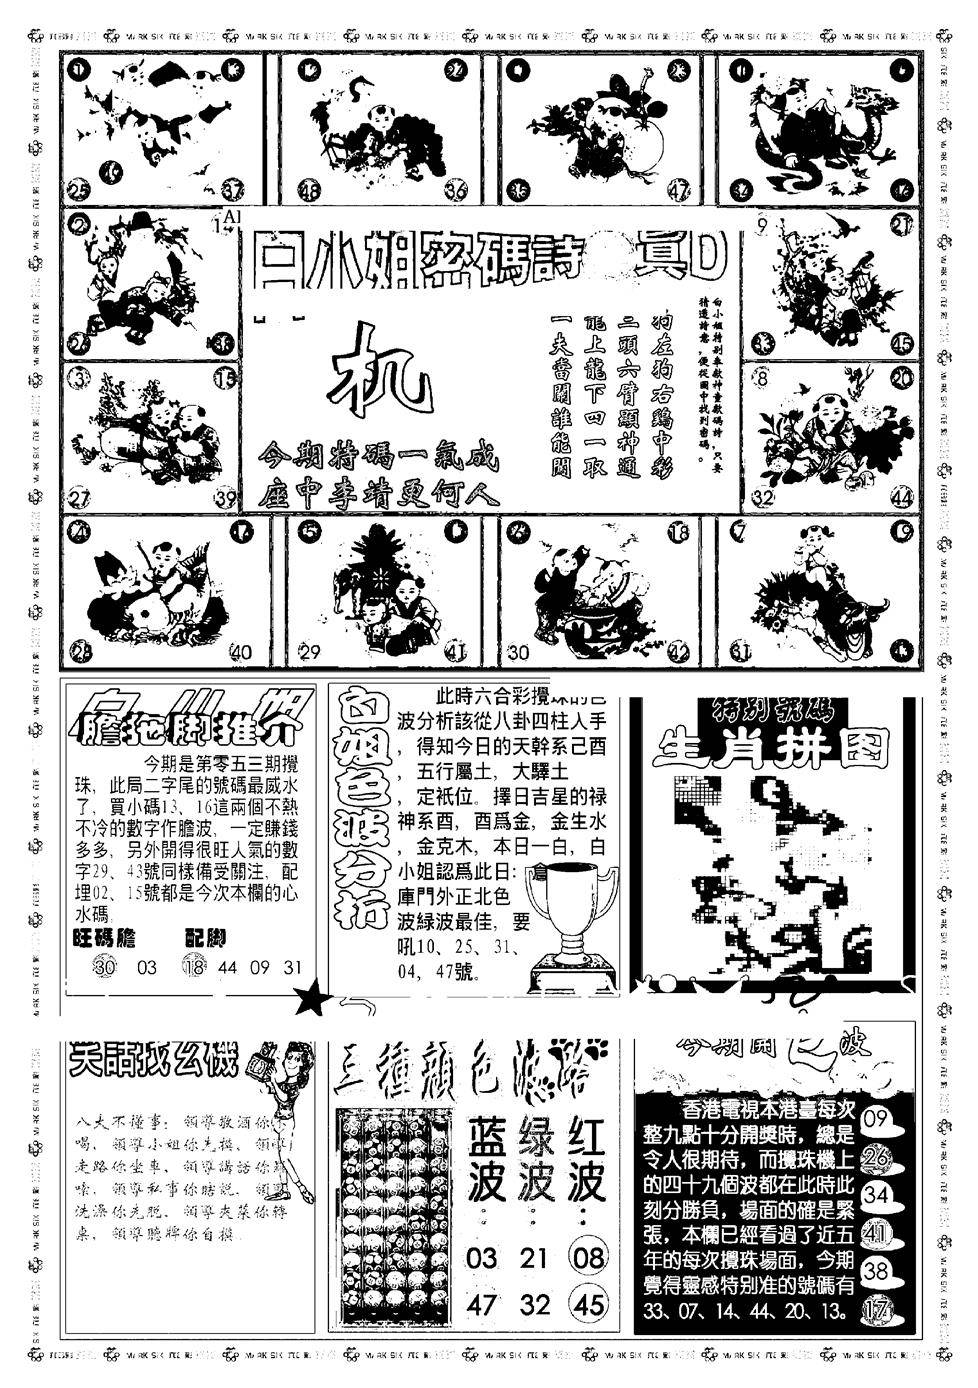 25
37
48
36
35
47
白小姐密碼詩
真D
机
今期特碼一氣成
座中李靖更何人
白小姐特別奉獻神童獻碼詩，只要
猜透詩意，便從圖中找到密碼。
狗左狗右鷄中彩
三頭六臂顯神通
能上龍下四一取
一夫當關誰能開
9
21
33
45
3
15
27
39
8
20
32
44
4
28
40
5
29
41
18
30
42
7
19
31
膽拖脚推介
今期是第零五三期攪
珠，此局二字尾的號碼最威水
了，買小碼13、16這兩個不熱
不冷的數字作膽波，一定賺錢
多多，另外開得很旺人氣的數
字29、43號同樣備受關注，配
埋02、15號都是今次本欄的心
水碼。
旺碼膽 配脚
30 03 18 44 09 31
白姐色波分析
此時六合彩攪珠的色
波分析該從八卦四柱人手
，得知今日的天幹系己酉
，五行屬土，大驛土
，定衹位。擇日吉星的禄
神系酉，酉爲金，金生水
，金克木，本日一白，白
小姐認爲此日：倉
庫門外正北色
波緑波最佳，要
吼10、25、31、
04、47號。
特別號碼
生肖拼图
笑話找玄機
八大不懂事：領導敬酒你不
喝，領導小姐你先摸，領導
走路你坐車，領導講話你
嗦，領導私事你瞎説，領導
洗澡你先脱，領導夾菜你轉
桌，領導聽牌你自摸。
三種顔色波路
蓝波： 绿波： 红波：
03 21 08
47 32 45
今期開色波
香港電視本港臺每次
整九點十分開獎時，總是
令人很期待，而攪珠機上
的四十九個波都在此時此
刻分勝負，場面的確是緊
張，本欄已經看過了近五
年的每次攪珠場面，今期
覺得靈感特別准的號碼有
33、07、14、44、20、13。
09
26
34
41
38
17